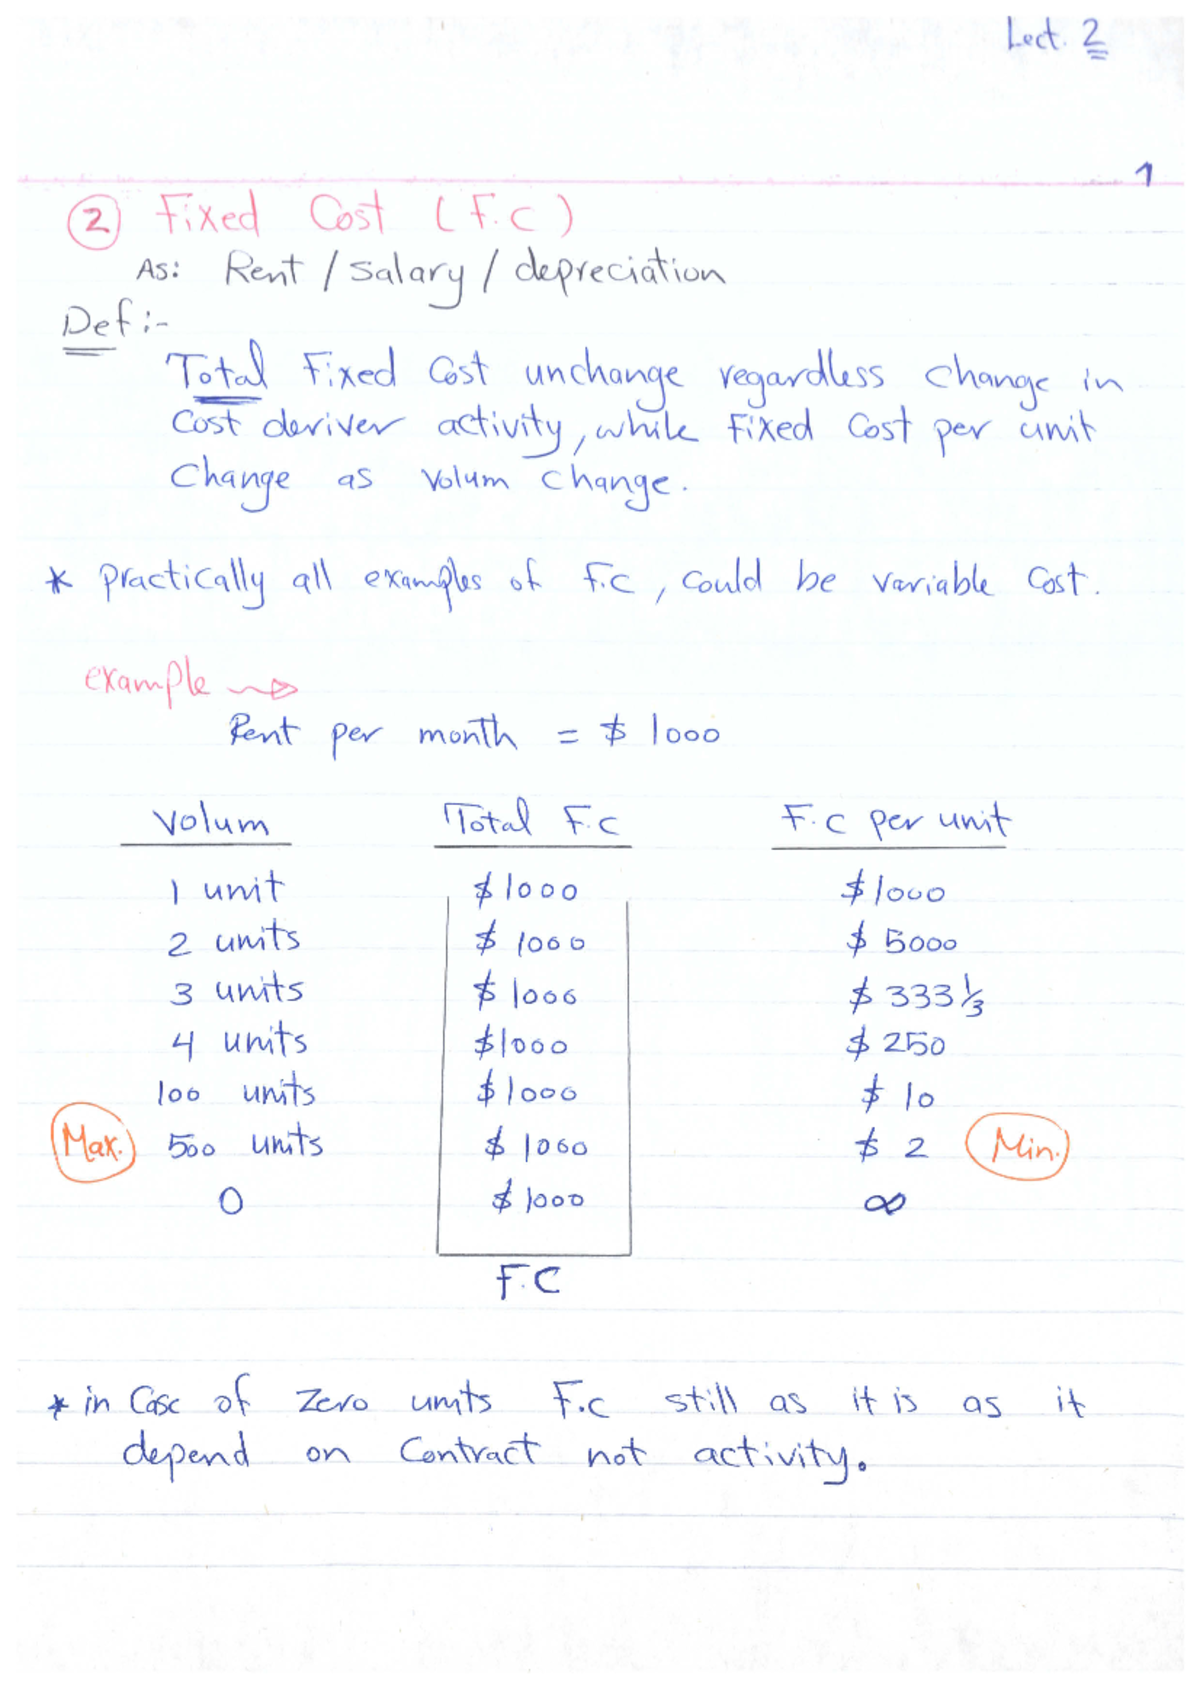 Lect. 2
1
2 Fixed Cost (F.C)
As: Rent / salary / depreciation
Def:-
Total Fixed Cost unchange regardless change in
Cost deriver activity, while Fixed Cost per unit
Change as Volum change.
* practically all examples of F.C, Could be variable Cost.
example
Rent per month = $ 1000
Volum Total F.C F.C per unit
1 unit $1000 $1000
2 units $ 1000 $ 5000
3 units $ 1000 $ 333 1/3
4 units $1000 $ 250
100 units $1000 $ 10
Max. 500 units $ 1000 $ 2 Min.
0 $ 1000 ∞
F.C
* in Case of Zero units F.C still as it is as it
depend on Contract not activity.